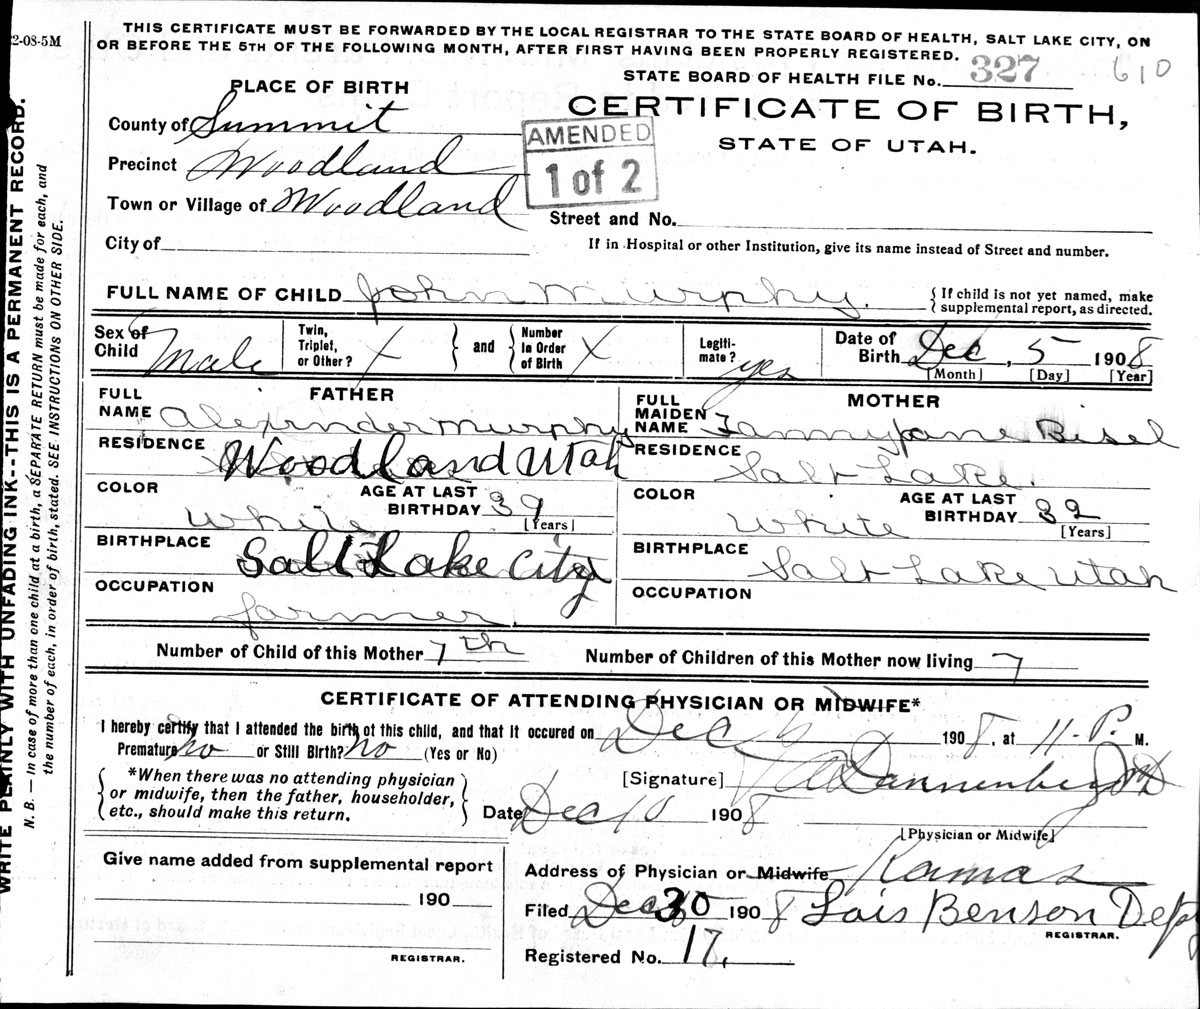 2-08-5M
THIS CERTIFICATE MUST BE FORWARDED BY THE LOCAL REGISTRAR TO THE STATE BOARD OF HEALTH, SALT LAKE CITY, ON
OR BEFORE THE 5TH OF THE FOLLOWING MONTH, AFTER FIRST HAVING BEEN PROPERLY REGISTERED.
STATE BOARD OF HEALTH FILE No. 327 610
PLACE OF BIRTH
CERTIFICATE OF BIRTH,
STATE OF UTAH.
County of Summit
AMENDED
1 of 2
Precinct Woodland
Town or Village of Woodland
Street and No.
City of
If in Hospital or other Institution, give its name instead of Street and number.
FULL NAME OF CHILD John Murphy.
If child is not yet named, make
supplemental report, as directed.
Sex of Child Male
Twin, Triplet, or Other? X and Number In Order of Birth X
Legiti-mate? yes
Date of Birth Dec, 5 1908
[Month] [Day] [Year]
FATHER
FULL NAME Alexander Murphy
MOTHER
FULL MAIDEN NAME Fannyjane Bisel
RESIDENCE Woodland Utah
RESIDENCE Salt Lake.
COLOR White
AGE AT LAST BIRTHDAY 39
[Years]
COLOR White
AGE AT LAST BIRTHDAY 32
[Years]
BIRTHPLACE Salt Lake City
BIRTHPLACE Salt Lake Utah
OCCUPATION farmer.
OCCUPATION
Number of Child of this Mother 7th
Number of Children of this Mother now living 7
CERTIFICATE OF ATTENDING PHYSICIAN OR MIDWIFE*
I hereby certify that I attended the birth of this child, and that it occured on Dec 1908, at 11-P. M.
Premature no or Still Birth? no (Yes or No)
*When there was no attending physician
or midwife, then the father, householder,
etc., should make this return.
[Signature] Dannenberg MD
Date Dec 10 1908
[Physician or Midwife]
Give name added from supplemental report
190
REGISTRAR.
Address of Physician or Midwife Kamas
Filed Dec 30 1908 Lois Benson Dep
REGISTRAR.
Registered No. 17.
WRITE PLAINLY WITH UNFADING INK--THIS IS A PERMANENT RECORD.
N. B. — In case of more than one child at a birth, a SEPARATE RETURN must be made for each, and
the number of each, in order of birth, stated. SEE INSTRUCTIONS ON OTHER SIDE.